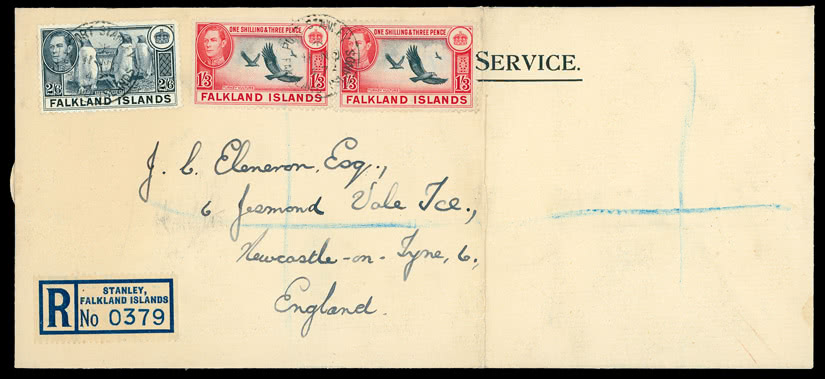 ONE SHILLING & THREE PENCE
ONE SHILLING & THREE PENCE
SERVICE.
2/6 2/6
1/3 1/3
1/3 1/3
FALKLAND ISLANDS
FALKLAND ISLANDS
FALKLAND ISLANDS
Esq.,
6 Jesmond Vale Tce.,
Newcastle-on-Tyne, 6.,
England.
R
STANLEY,
FALKLAND ISLANDS
No 0379